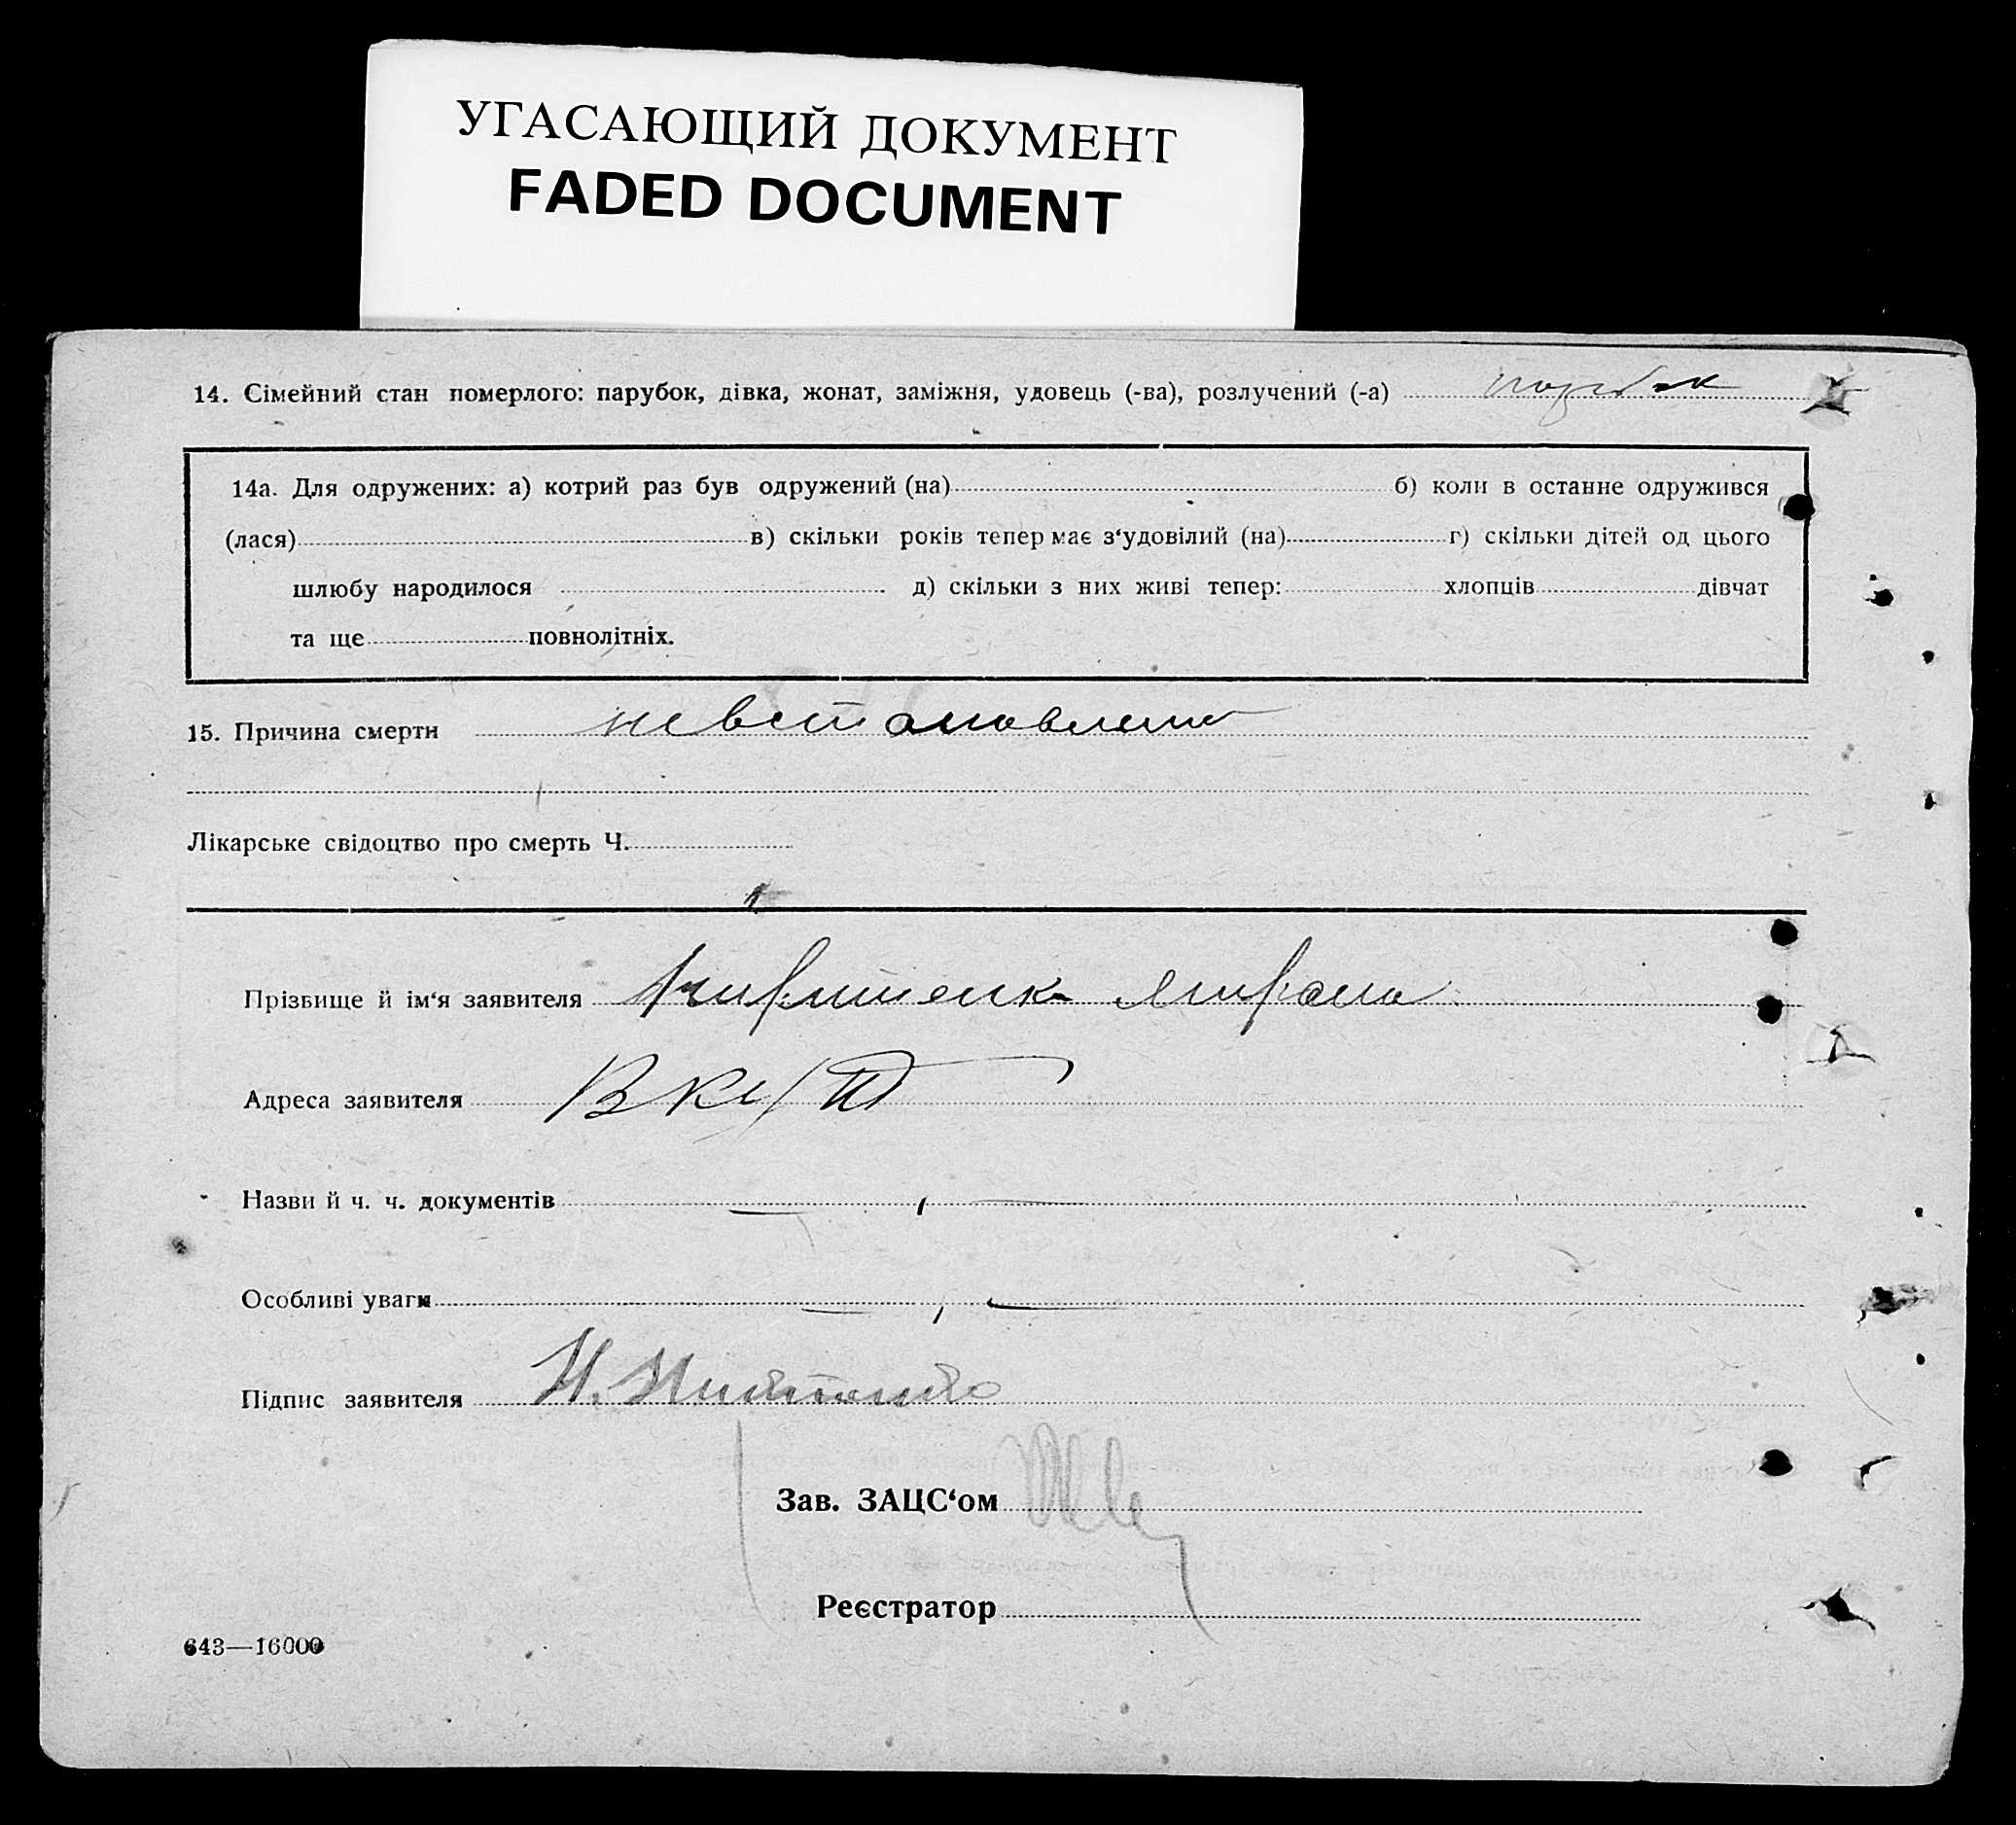 УГАСАЮЩИЙ ДОКУМЕНТ
FADED DOCUMENT
14. Сімейний стан померлого: парубок, дівка, жонат, заміжня, удовець (-ва), розлучений (-а) парубок
14а. Для одружених: а) котрий раз був одружений (на) б) коли в останне одружився
(лася) в) скільки років тепер має з‘удовілий (на) г) скільки дітей од цього
шлюбу народилося д) скільки з них живі тепер: хлопців дівчат
та ще повнолітніх.
15. Причина смерти невстановлена
Лікарське свідоцтво про смерть Ч.
Прізвище й ім‘я заявителя
Адреса заявителя
Назви й ч. ч. документів
Особливі уваги
Підпис заявителя
Зав. ЗАЦС‘ом
Реєстратор
643—16000